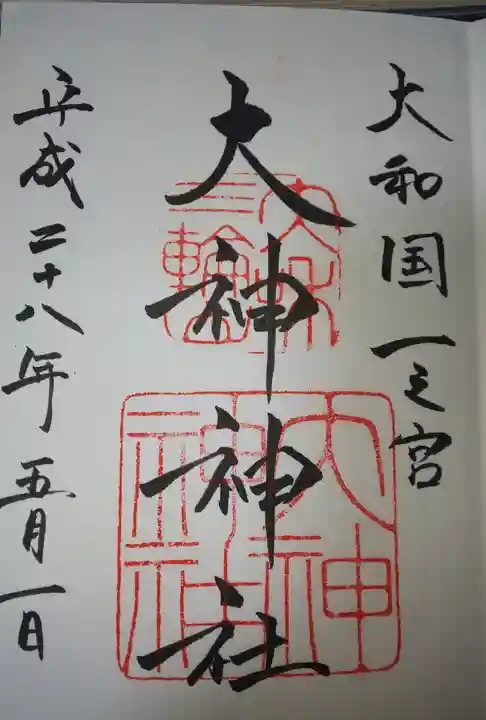 大和国一之宮
大神神社
三輪
大神神社
平成二十八年五月一日